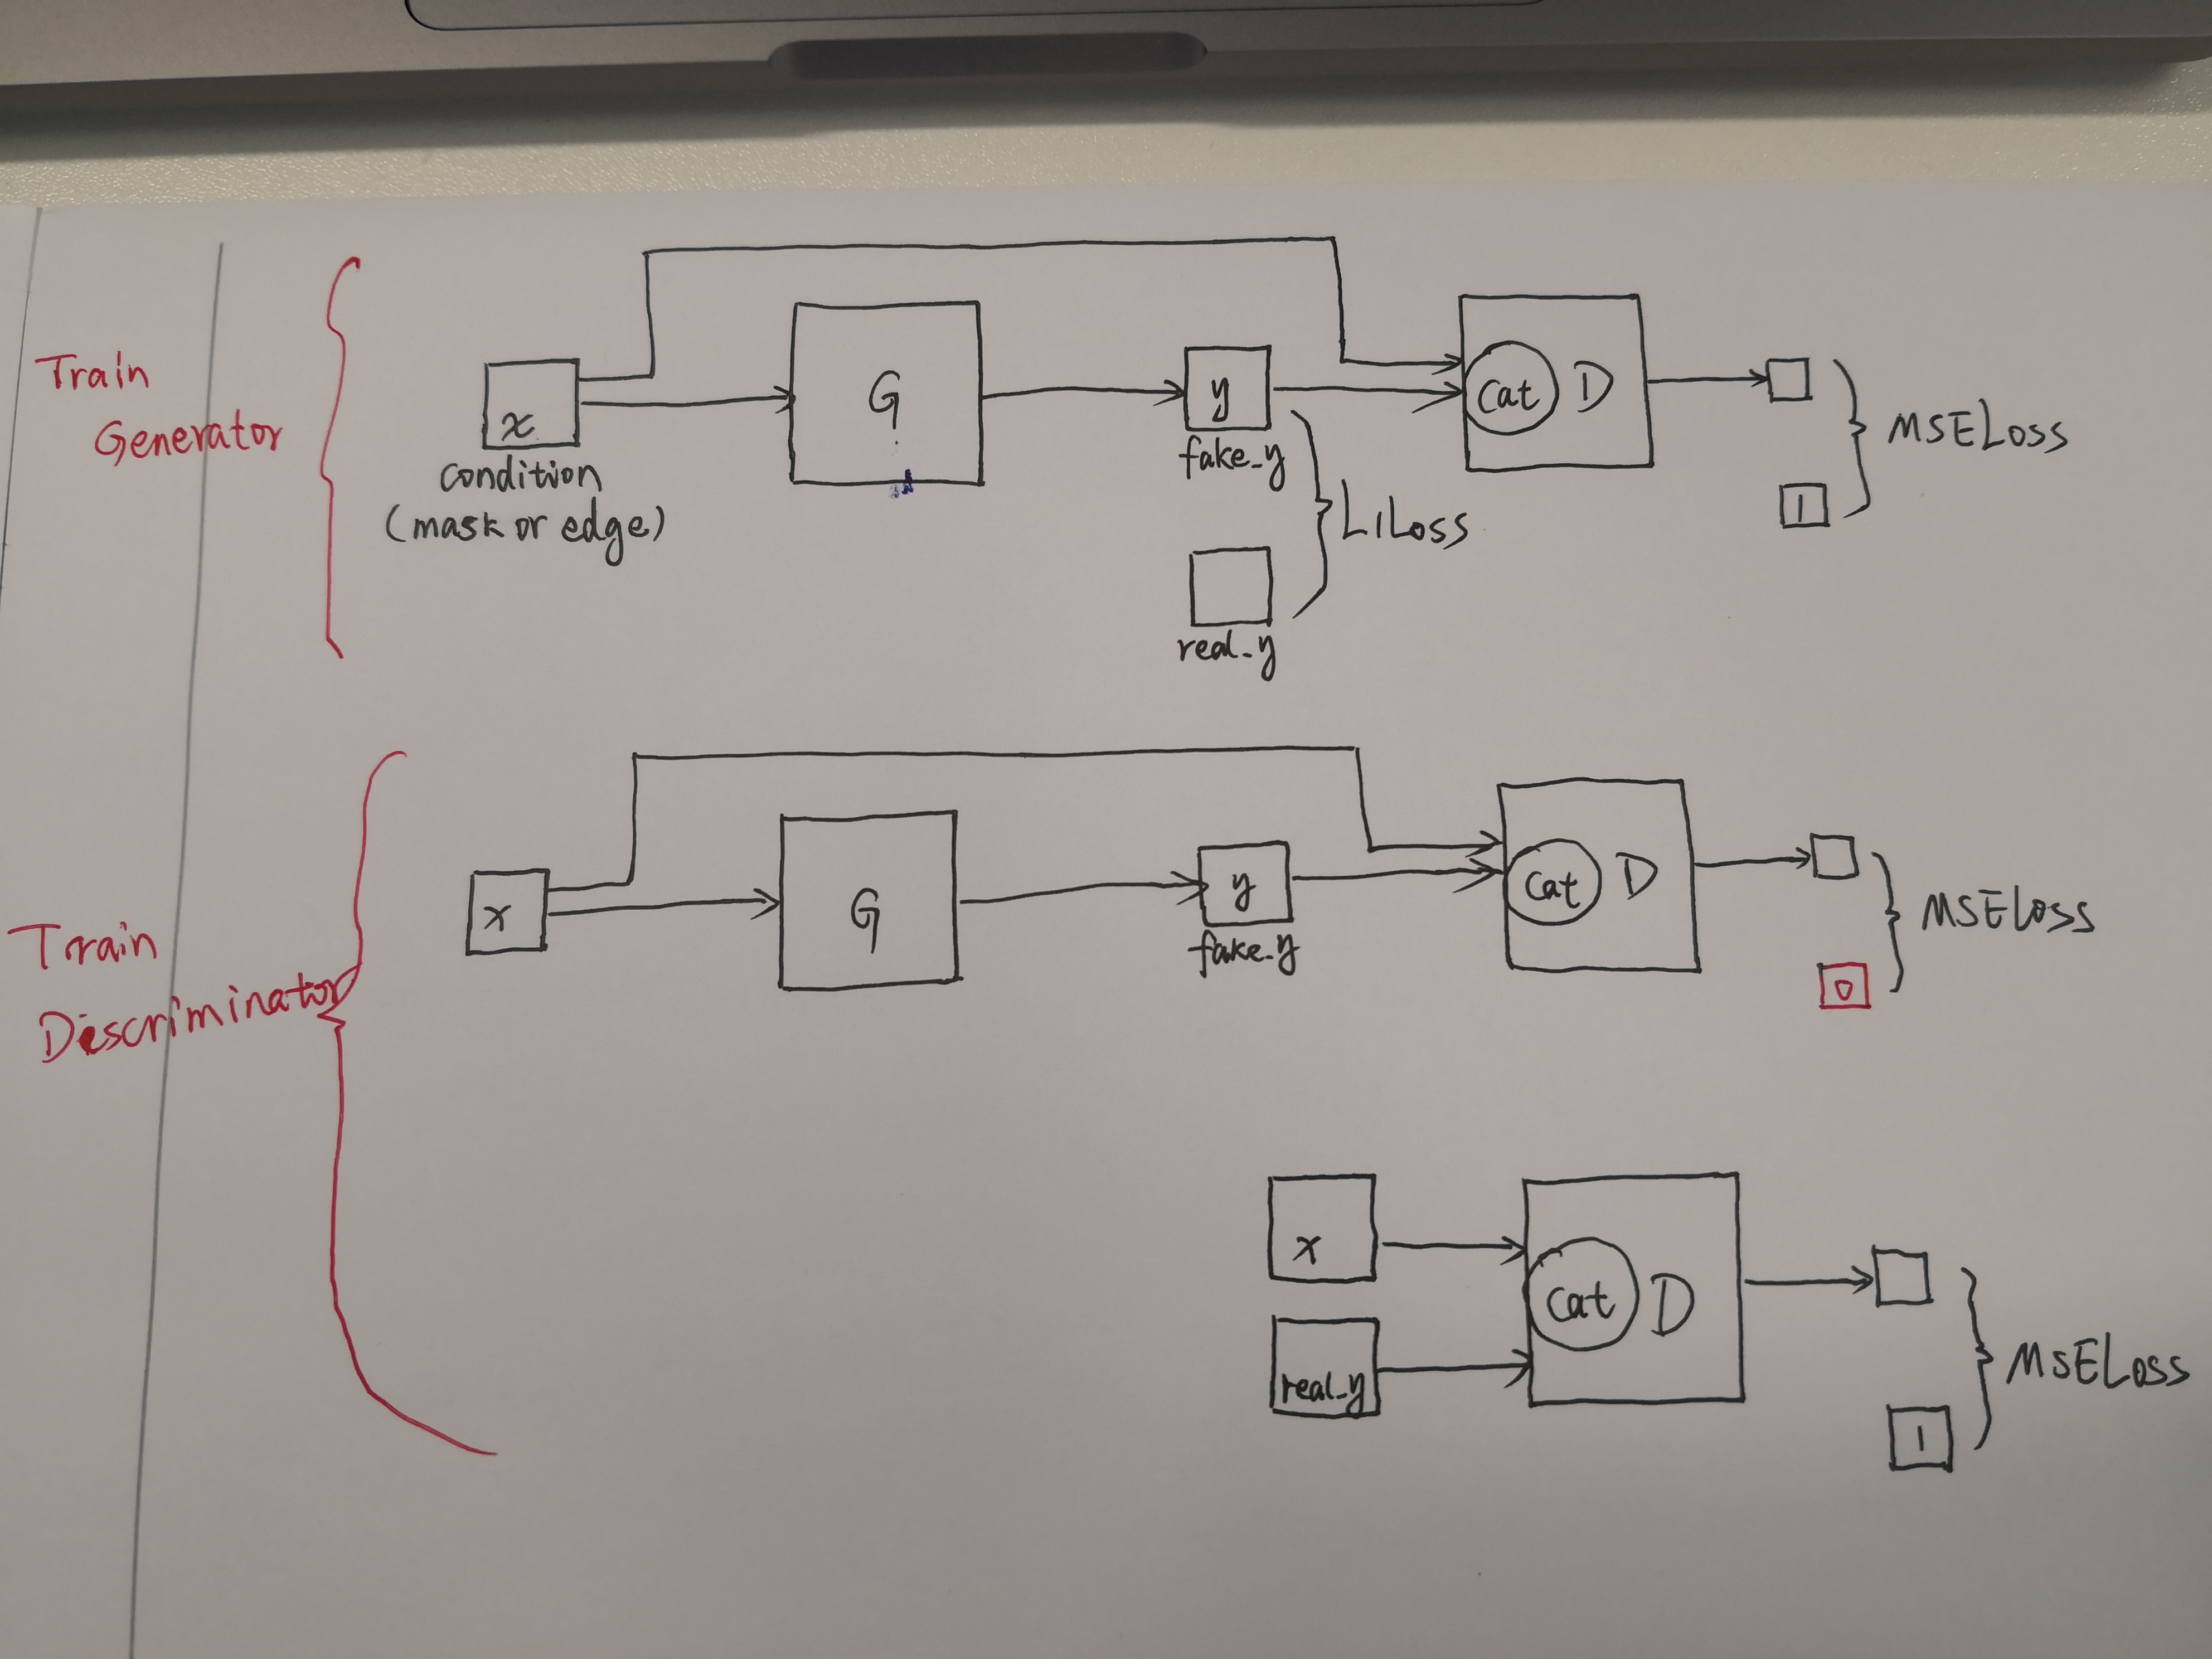 Train
Generator
x
condition
(mask or edge)
G
y
fake_y
real_y
L1Loss
Cat D
1
MSELoss
Train
Discriminator
x
G
y
fake_y
Cat D
0
MSELoss
x
real_y
Cat D
1
MSELoss